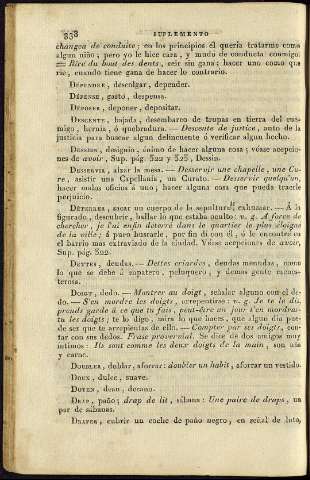 338 SUPLEMENTO
changea de conduite; en los principios él queria tratarme como
algun niño; pero yo le hice cara, y mudó de conducta conmigo.
= Rire du bout des dents, reir sin gana; hacer uno como que
rie, cuando tiene gana de hacer lo contrario.
DÉPENDRE, descolgar, depender.
DÉPENSE, gasto, despensa.
DÉPOSER, deponer, depositar.
DESCENTE, bajada, desembarco de tropas en tierra del ene-
migo, hernia, ó quebradura. — Descente de justice, auto de la
justicia para buscar algun delincuente ó verificar algun hecho.
DESSEIN, designio, ánimo de hacer alguna cosa; véase acepcio-
nes de avoir, Sup. pág. 522 y 525, Dessin.
DESSERVIR, alzar la mesa. — Desservir une chapelle, une Cu-
re, asistir una Capellanía, un Curato. — Desservir quelqu'un,
hacer malos oficios á uno, hacer alguna cosa que pueda traerle
perjuicio.
DÉTERRER, sacar un cuerpo de la sepultura, exhumar. — Á lo
figurado, descubrir, hallar lo que estaba oculto: v. g. A force de
chercher, je l'ai enfin déterré dans le quartier le plus éloigné
de la ville; á puro buscarle, por fin dí con él, ó le encontré en
el barrio mas extraviado de la ciudad. Véase acepciones de avoir,
Sup. pág. 522.
DETTES, deudas. — Dettes criardes, deudas menudas, como
lo que se debe á zapatero, peluquero, y demas gente menes-
terosa.
DOIGT, dedo. — Montrer au doigt, señalar alguno con el de-
do. — S'en mordre les doigts, arrepentirse: v. g. Je te le dis,
prends garde à ce que tu fais, peut-être un jour t'en mordras-
tu les doigts; te lo digo, mira lo que haces, que algun dia pue-
de ser que te arrepientas de ello. — Compter par ses doigts, con-
tar con sus dedos. Frase proverbial. Se dice de dos amigos muy
intimos: Ils sont comme les deux doigts de la main, son uña
y carne.
DOUBLER, doblar, aforrar: doubler un habit, aforrar un vestido.
DOUX, dulce, suave.
DOYEN, dean, decano.
DRAP, paño; drap de lit, sábana: Une paire de draps, un
par de sábanas.
DRAPER, cubrir un coche de paño negro, en señal de luto,